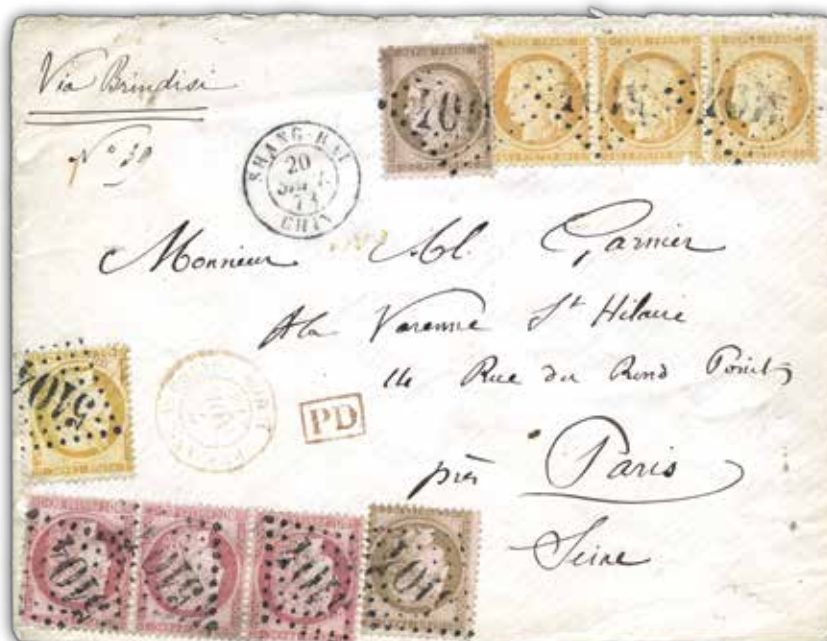 Via Brindisi
N° 30
SHANG-HAI
20
SEPT.
73
CHINE
Monsieur Al. Garnier
A la Varenne St Hilaire
14 Rue du Rond Point
PD
près Paris
Seine
5104
5104
5104
5104